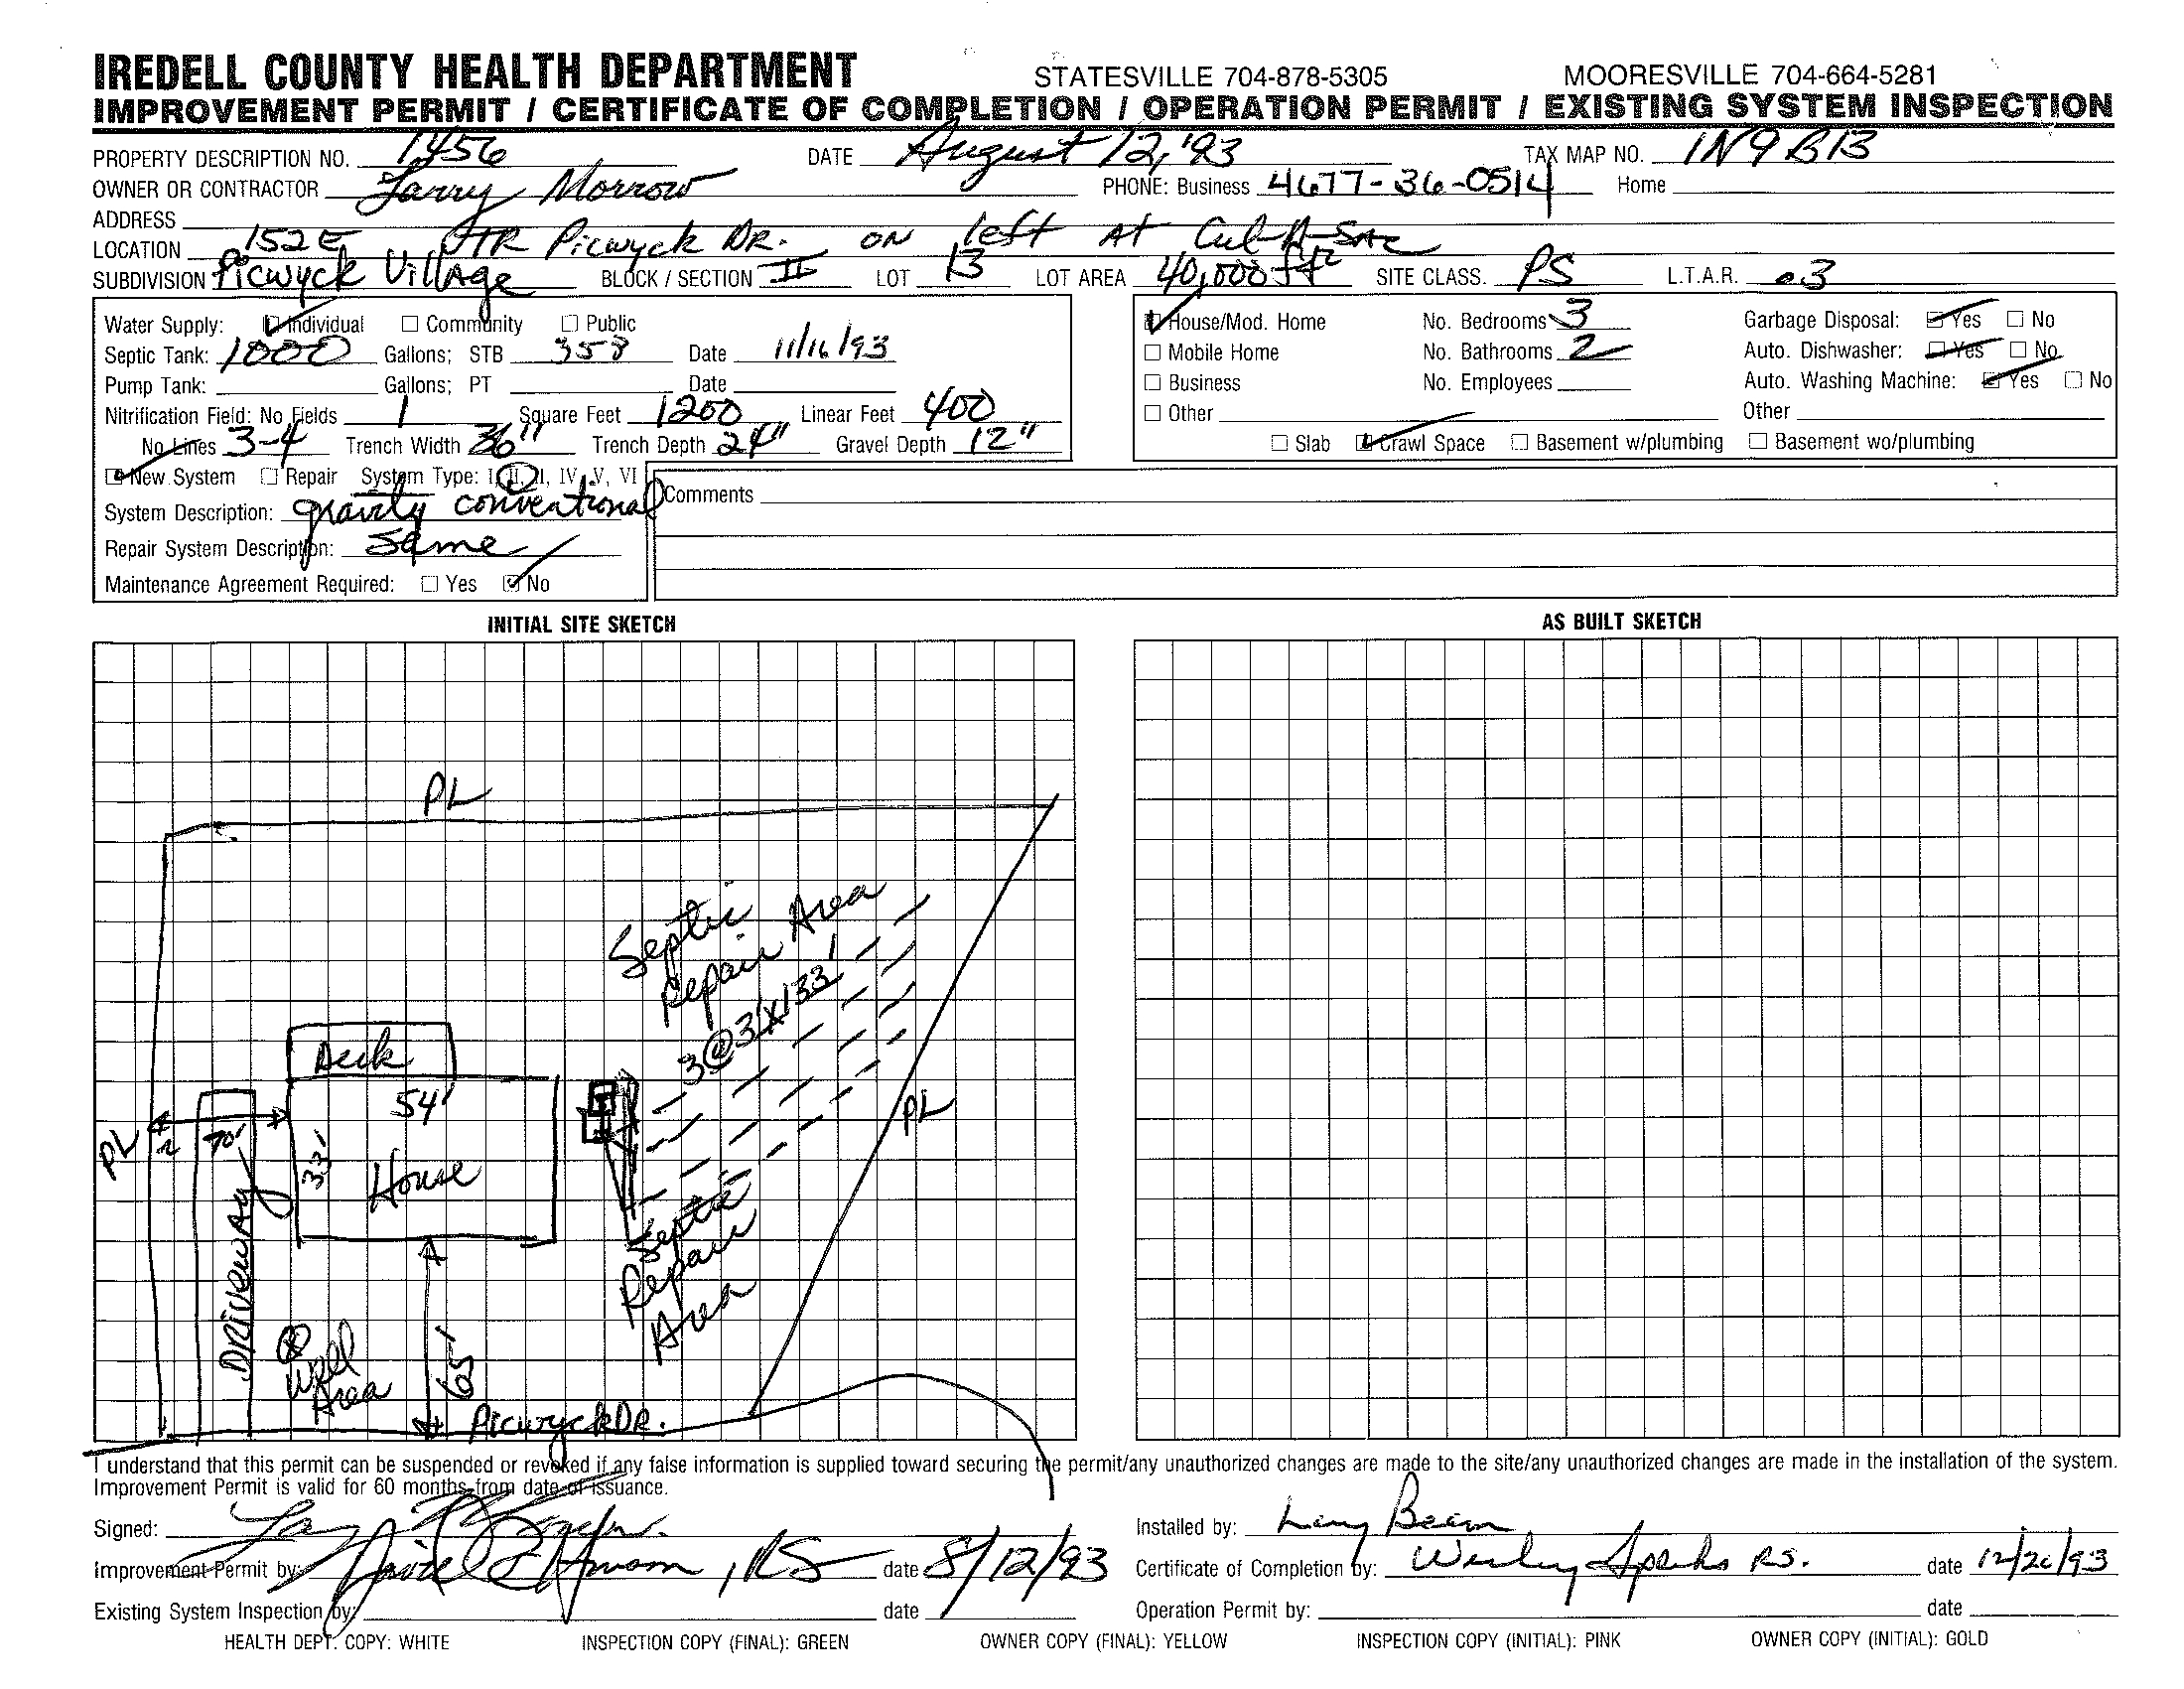 IREDELL COUNTY HEALTH DEPARTMENT STATESVILLE 704-878-5305 MOORESVILLE 704-664-5281
IMPROVEMENT PERMIT / CERTIFICATE OF COMPLETION / OPERATION PERMIT / EXISTING SYSTEM INSPECTION
PROPERTY DESCRIPTION NO. 1456 DATE August 12, '93 TAX MAP NO. 1N9B13
OWNER OR CONTRACTOR Larry Morrow PHONE: Business 4677-36-0514 Home
ADDRESS
LOCATION 152E TR Picwyck DR. ON left AT Cul-A-SAC
SUBDIVISION Picwyck Village BLOCK / SECTION II LOT 13 LOT AREA 40,000 ft² SITE CLASS. PS L.T.A.R. .3
Water Supply: Individual Community Public
Septic Tank: 1000 Gallons; STB 358 Date 11/16/93
Pump Tank: Gallons; PT Date
Nitrification Field: No Fields 1 Square Feet 1200 Linear Feet 400
No Lines 3-4 Trench Width 36" Trench Depth 24" Gravel Depth 12"
House/Mod. Home No. Bedrooms 3 Garbage Disposal: Yes No
Mobile Home No. Bathrooms 2 Auto. Dishwasher: Yes No
Business No. Employees Auto. Washing Machine: Yes No
Other Other
Slab Crawl Space Basement w/plumbing Basement wo/plumbing
New System Repair System Type: I, II, III, IV, V, VI
System Description: gravity conventional
Repair System Description: Same
Maintenance Agreement Required: Yes No
Comments
INITIAL SITE SKETCH
AS BUILT SKETCH
PL
Septic
Repair Area
3@3'x133'
Deck
54'
PL
70'
33'
House
PL
Driveway
Septic
Repair
Area
Well
Area
65'
Picwyck DR.
I understand that this permit can be suspended or revoked if any false information is supplied toward securing the permit/any unauthorized changes are made to the site/any unauthorized changes are made in the installation of the system.
Improvement Permit is valid for 60 months from date of issuance.
Signed:
Installed by: Larry Beam
Improvement Permit by: , RS date 8/12/93
Certificate of Completion by: Wesley Sparks RS. date 12/20/93
Existing System Inspection by: date
Operation Permit by: date
HEALTH DEPT. COPY: WHITE INSPECTION COPY (FINAL): GREEN OWNER COPY (FINAL): YELLOW INSPECTION COPY (INITIAL): PINK OWNER COPY (INITIAL): GOLD